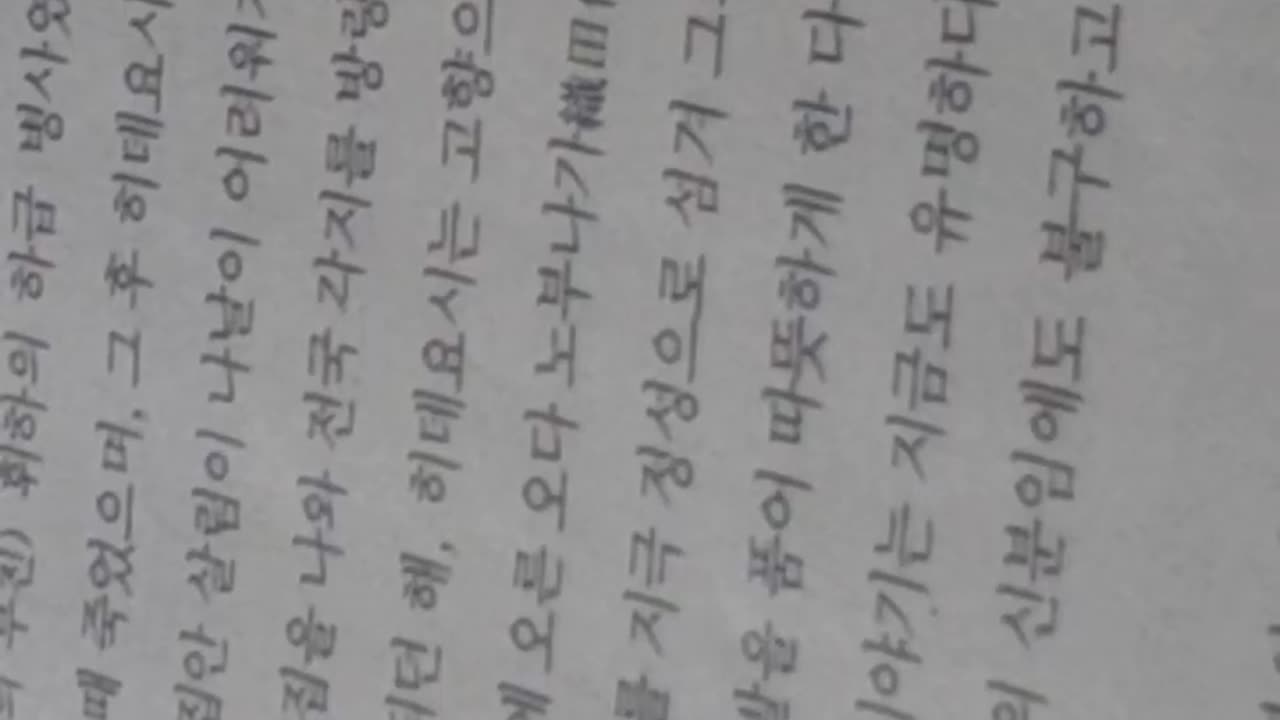 부친) 휘하의 하급 병사였
때 죽었으며, 그 후 히데요시
집안 살림이 나날이 어려워
집을 나와 전국 각지를 방랑
되던 해, 히데요시는 고향으
에 오른 오다 노부나가(織田
를 지극 정성으로 섬겨 그
발을 품어 따뜻하게 한 다
이야기는 지금도 유명하다
의 신분임에도 불구하고